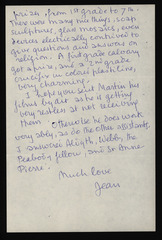 prizes, from 1st grade to 7th.
There was many nice things, soap
sculptures, glad mosaics, even
devices electrically contrived to
give questions and answers on
religion. A 1st grade calvary
got a prize, and a 2nd grade
crucifix in colored plasticine,
very charming.
I hope you sent Martin his
films by air as he is getting
very restless at not receiving
them. Otherwise he does work
very ably, as do the other assistants.
I answered Alizth, Webb, the
Peabody fellow, and Sr. Anne
Pierre.
Much love
Jean